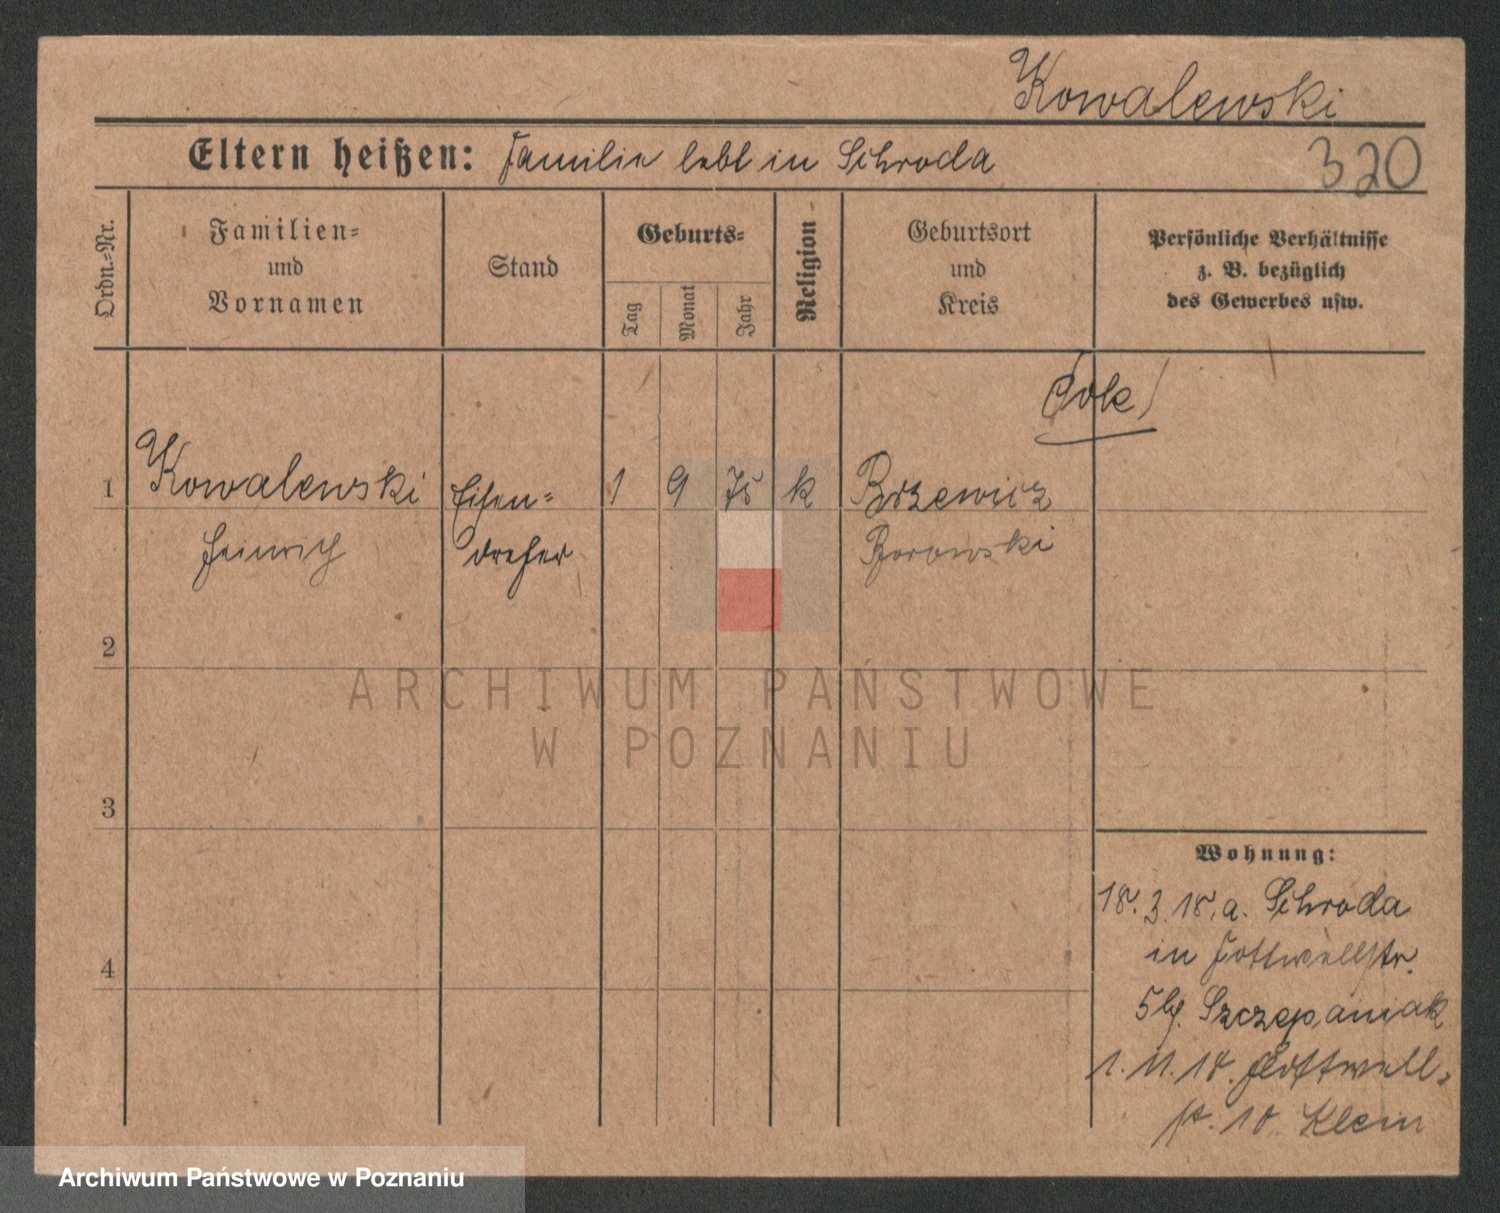 Kowalewski
Eltern heißen: Familie lebt in Schroda
320
Ordn.=Nr.
Familien=
und
Vornamen
Stand
Geburts=
Tag
Monat
Jahr
Religion
Geburtsort
und
Kreis
Persönliche Verhältnisse
z. B. bezüglich
des Gewerbes usw.
1
Kowalewski
Heinrich
Eisen=
dreher
1
9
75
k
Brzewicz
Borowski
2
3
4
Wohnung:
18. 3. 18. a. Schroda
in
Szczepaniak
1. 11. 18.
Klein
ARCHIWUM PAŃSTWOWE
W POZNANIU
Archiwum Państwowe w Poznaniu